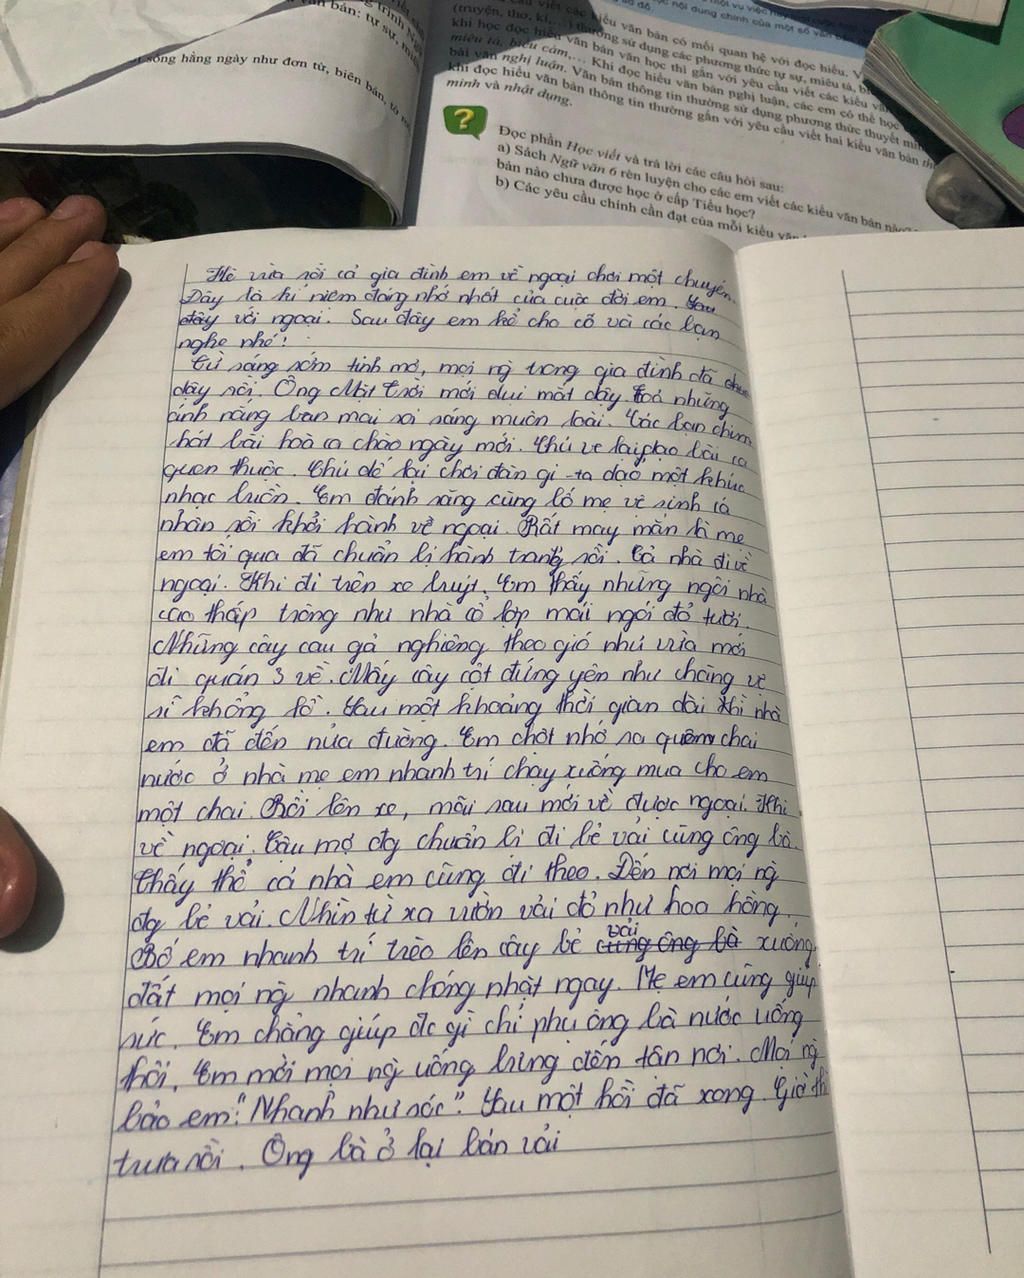 sống hằng ngày như đơn từ, biên bản,
văn bản: tự sự, miêu
viết các kiểu văn bản có mối quan hệ với đọc hiểu.
(truyện, thơ, kí,...) thường sử dụng các phương thức tự sự, miêu tả,
miêu tả, biểu cảm,... Khi đọc hiểu văn bản nghị luận, các em có thể học
bài văn nghị luận. Văn bản thông tin thường sử dụng phương thức thuyết minh
khi đọc hiểu văn bản thông tin thường gắn với yêu cầu viết hai kiểu văn bản
minh và nhật dụng.
?
Đọc phần Học viết và trả lời các câu hỏi sau:
a) Sách Ngữ văn 6 rèn luyện cho các em viết các kiểu văn bản nào?
bản nào chưa được học ở cấp Tiểu học?
b) Các yêu cầu chính cần đạt của mỗi kiểu văn
Hè vừa rồi cả gia đình em về ngoại chơi một chuyến.
Đây là kỉ niệm đáng nhớ nhất của cuộc đời em. Sau
đây với ngoại. Sau đây em kể cho cô và các bạn
nghe nhé!
Từ sáng sớm tinh mơ, mọi ng̀ trong gia đình đã
dậy rồi. Ông Mặt Trời mới dụi mắt dậy toả những
ánh nắng ban mai soi sáng muôn loài. Các bạn chim
hát bài hoà ca chào ngày mới. Chú ve lại dạo bài ca
quen thuộc. Chú dế lại chơi đàn gi-ta dạo một khúc
nhạc luôn. Em đánh răng cùng bố mẹ vệ sinh cá
nhân rồi khởi hành về ngoại. Rất may mắn là mẹ
em tối qua đã chuẩn bị hành trang rồi. Cả nhà đi về
ngoại. Khi đi trên xe buýt. Em thấy những ngôi nhà
cao thấp trông như nhà cổ lợp mái ngói đỏ tươi.
Những cây cau gả nghiêng theo gió như vừa mới
đi quán 3 về. Mấy cây cột đứng yên như chàng vệ
sĩ khổng lồ. Sau một khoảng thời gian dài thì nhà
em đã đến nửa đường. Em chợt nhớ ra quên chai
nước ở nhà mẹ em nhanh trí chạy xuống mua cho em
một chai. Rồi lên xe, mãi sau mới về được ngoại. Khi
về ngoại. Cậu mợ đg chuẩn bị đi bẻ vải cùng ông bà.
Thấy thế cả nhà em cũng đi theo. Đến nơi mọi ng̀
đg bẻ vải. Nhìn từ xa vườn vải đỏ như hoa hồng.
Bố em nhanh trí trèo lên cây bẻ cùng ông bà vải xuống
đất mọi ng̀ nhanh chóng nhặt ngay. Mẹ em cũng giúp
sức. Em chẳng giúp đc gì chỉ phụ ông bà nước uống
thôi. Em mời mọi ng̀ uống bưng đến tận nơi. Mọi ng̀
bảo em: "Nhanh như sóc". Sau một hồi đã xong. Giờ thì
trưa rồi. Ông bà ở lại bán vải